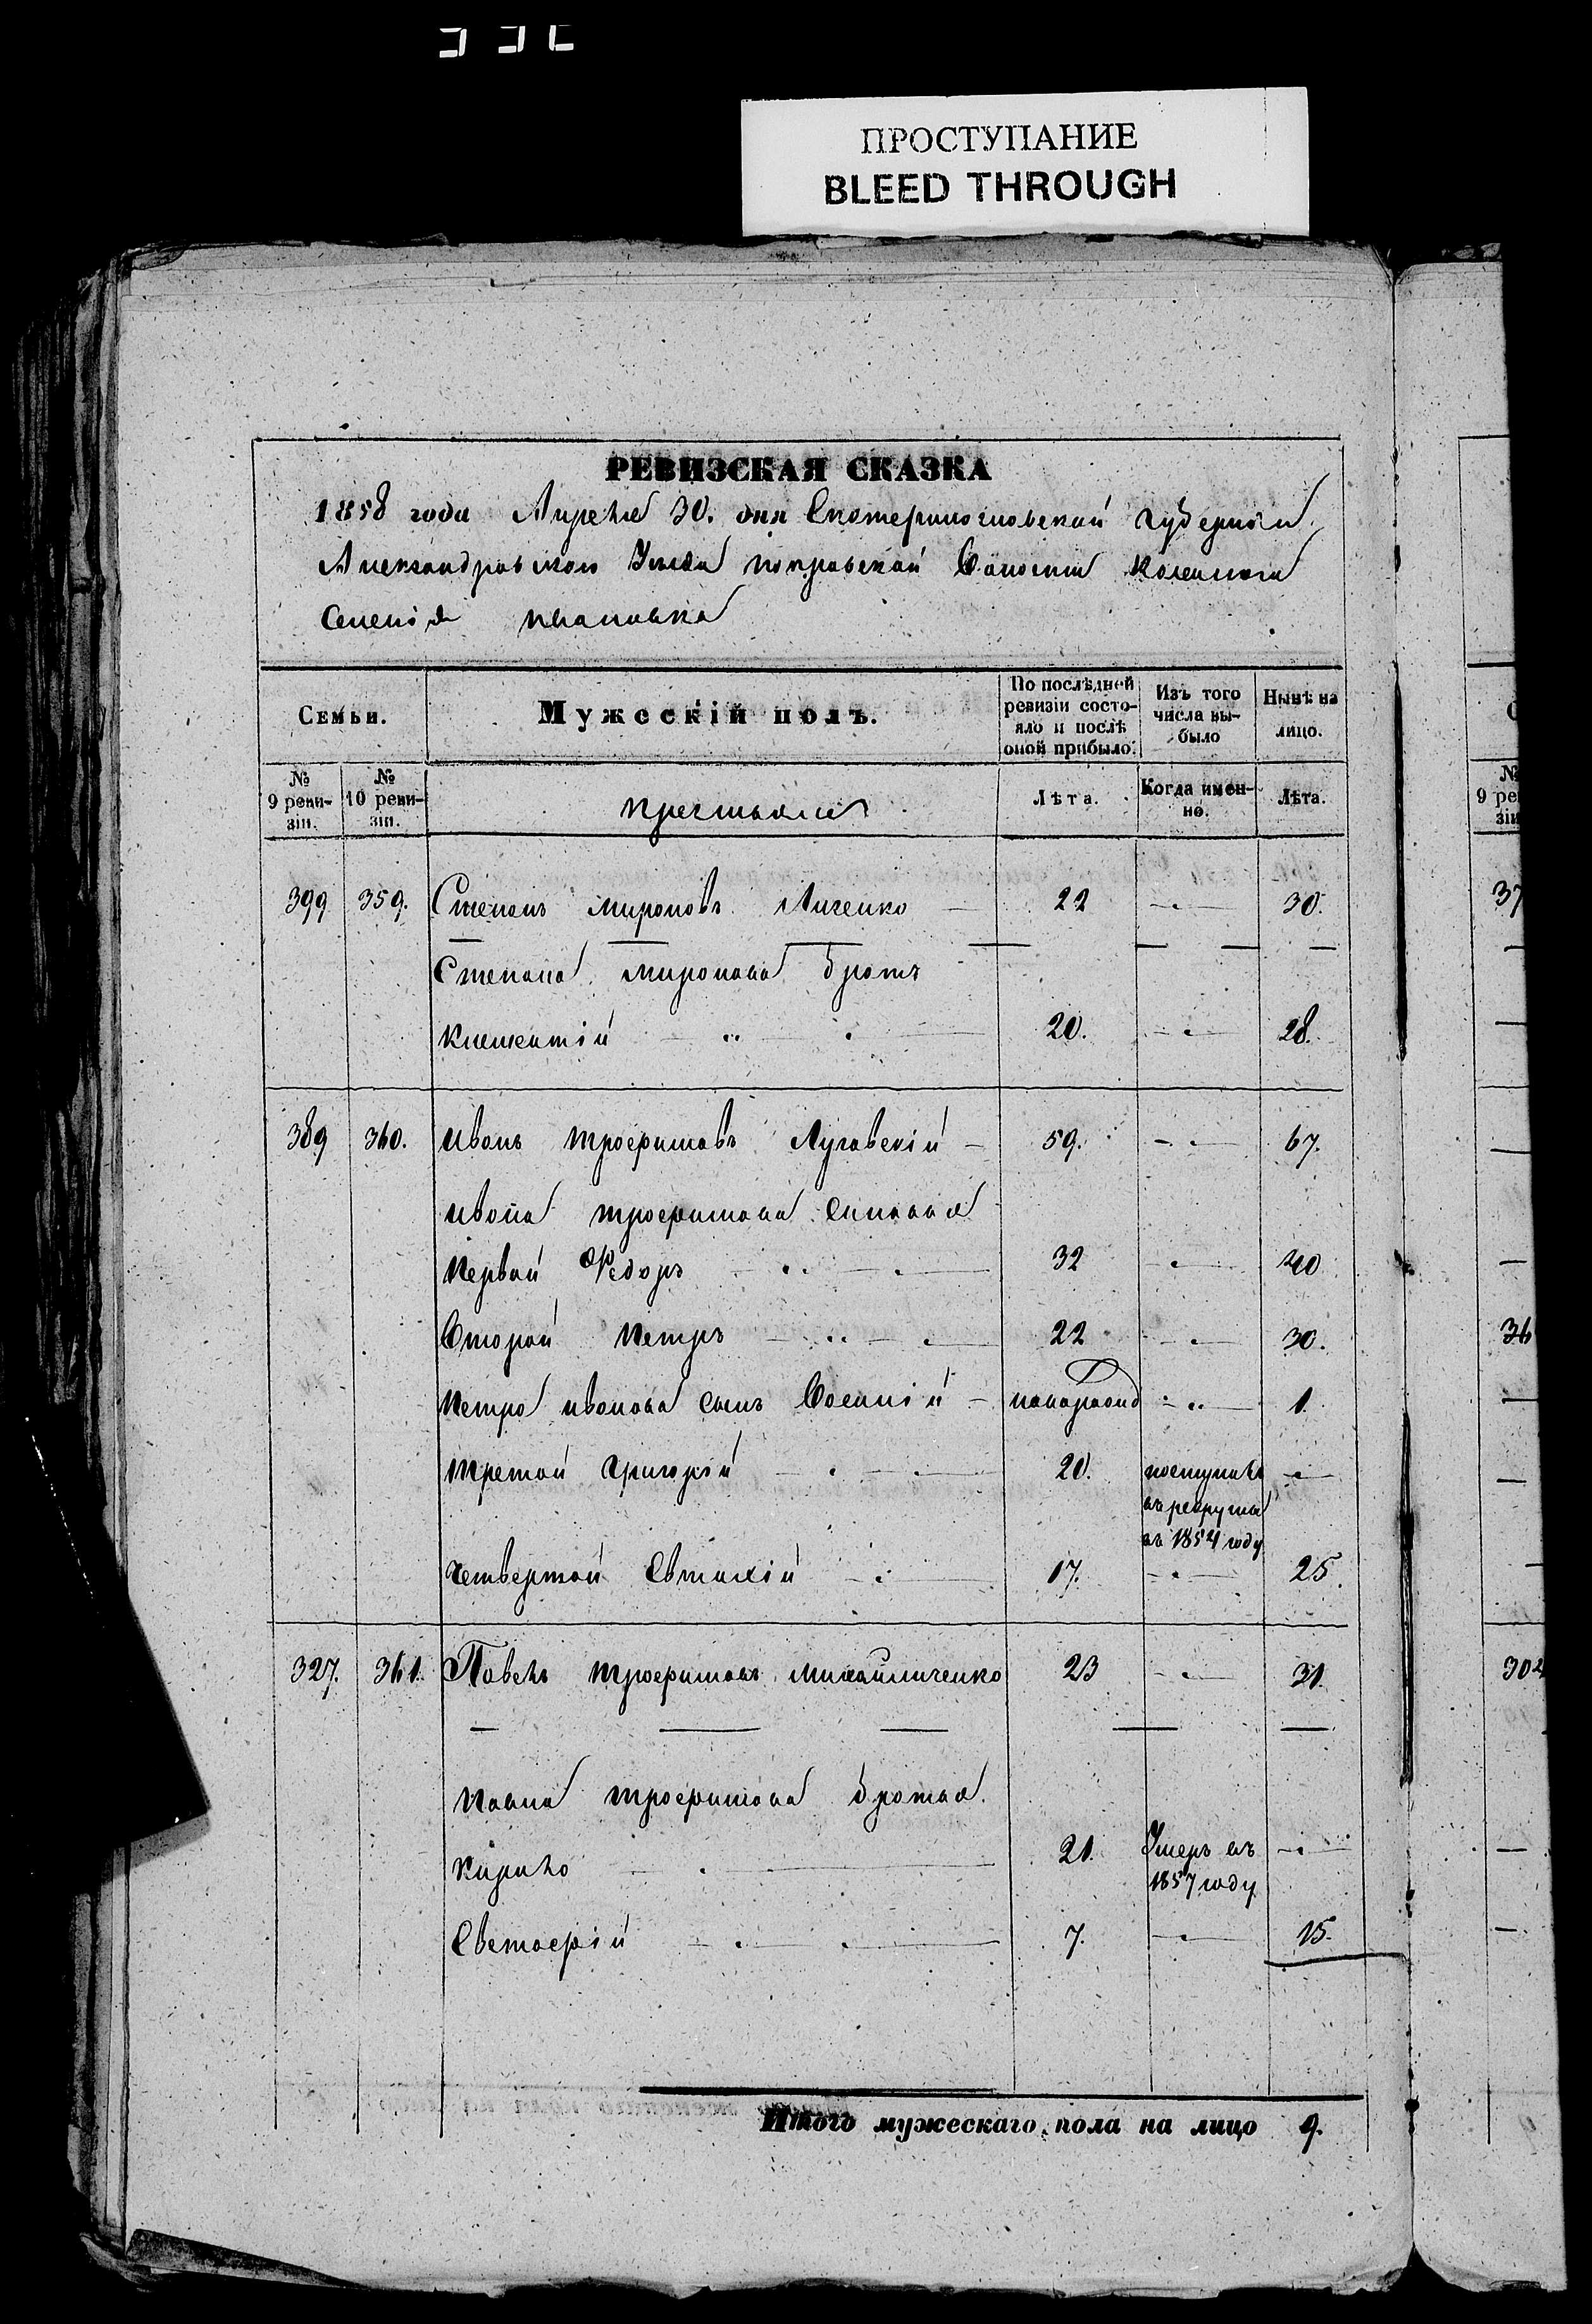 ПРОСТУПАНИЕ
BLEED THROUGH
РЕВИЗСКАЯ СКАЗКА
1858 года Апреля 30. дня Екатеринославской Губернии
Александровского Уезда покровской Волости казенного
Селенія
Семьи. Мужескій полъ. По послѣдней ревизіи состояло и послѣ оной прибыло. Изъ того числа выбыло Нынѣ на лицо.
№ 9 ревизіи. № 10 ревизіи. Крестьяне Лѣта. Когда именно. Лѣта.
399 359. Степанъ Мироновъ 22 30.
Степана Миронова братъ
Климентій 20. 28.
389 360. Иванъ Трофимовъ Луговскій 59. 67.
Ивана Трофимова Синовья
Первой Федоръ 32 40
Второй Петръ 22 30.
Петра Иванова сынъ Василій новорожд 1.
Третой Григорій 20. поступилъ
въ рекруты
въ 1854 году
Четвертой Евтихій 17. 25.
327. 361. Павелъ Трофимовъ Михайличенко 23 31.
Павла Трофимова братья
Кирило 21. Умеръ въ
1857 году
Евстафій 7. 15.
Итого мужескаго пола на лицо 9.
37
36
302
№
9 ре
зіи